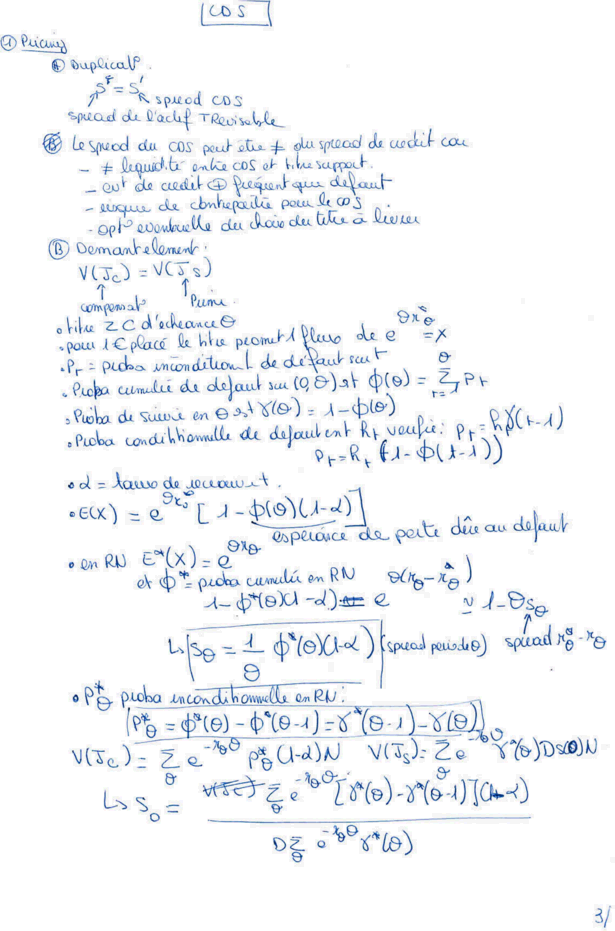 CDS
① Pricing
Ⓐ Duplicat°.
S* = S'
spread CDS
spread de l'actif TRevisable
Ⓑ Le spread du CDS peut être ≠ du spread de crédit car
- ≠ liquidité entre CDS et titre support.
- evt de credit ⊕ fréquent que défaut
- risque de contrepartie pour le CDS
- opt° eventuelle du choix du titre à livrer
Ⓑ Demantelement.
V(Jc) = V(Js)
compensat° Prime
• titre ZC d'echeance θ
• pour 1€ placé le titre promet 1 flux de e^{θ r*_θ} = X
• P_t = proba inconditionnl de défaut en t
• Proba cumulée de defaut sur (0,θ) est ϕ(θ) = Σ_{t=1}^{θ} P_t
• Proba de survie en θ est γ(θ) = 1-ϕ(θ)
• Proba conditionnelle de defaut en t h_t verifie: p_t = h_t γ(t-1)
P_t = h_t (1-ϕ(t-1))
• α = taux de recouvrt.
• E(X) = e^{θ r*_θ} [1-ϕ(θ)(1-α)]
esperance de perte dûe au defaut
• en RN E*(X) = e^{θ r_θ}
et ϕ* = proba cumulée en RN
1-ϕ*(θ)(1-α) = e^{θ(r_θ - r*_θ)} ≃ 1-θ s_θ
↳ s_θ = 1/θ ϕ*(θ)(1-α) (spread periode θ) spread r*_θ - r_θ
• P*_θ proba inconditionnelle en RN:
P*_θ = ϕ*(θ) - ϕ*(θ-1) = γ*(θ-1) - γ(θ)
V(Jc) = Σ_θ e^{-r_θ θ} p*_θ (1-α)N V(Js) = Σ_θ e^{-r_θ θ} γ*(θ) D s(0) N
↳ S_0 = V(Jc) Σ_θ e^{-r_θ θ} [γ*(θ) - γ*(θ-1)](1-α)
D Σ_θ e^{-r_θ θ} γ*(θ)
3/